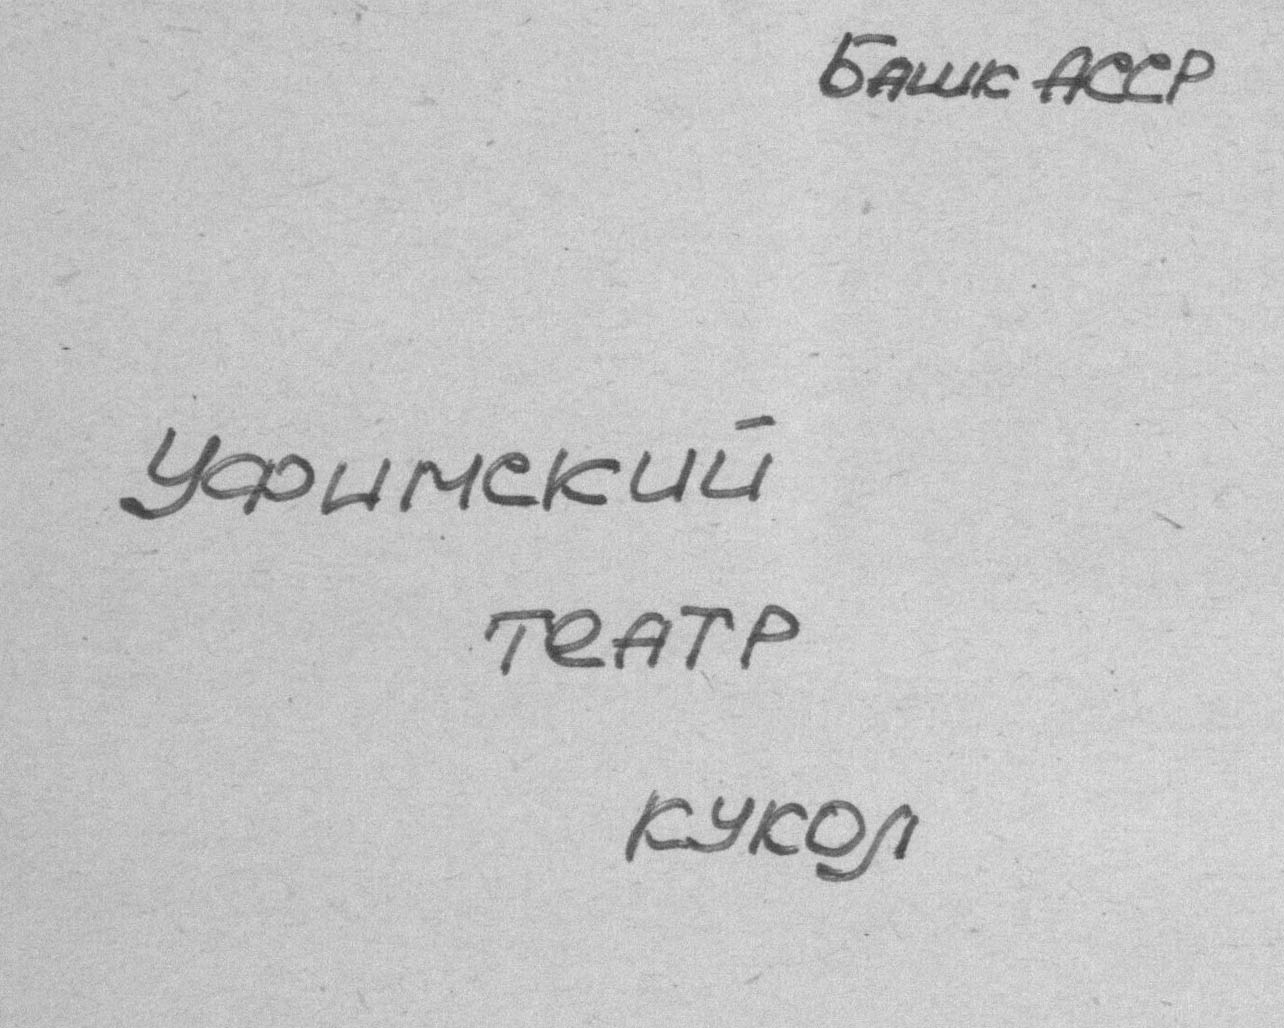 Башк АССР
Уфимский
театр
кукол